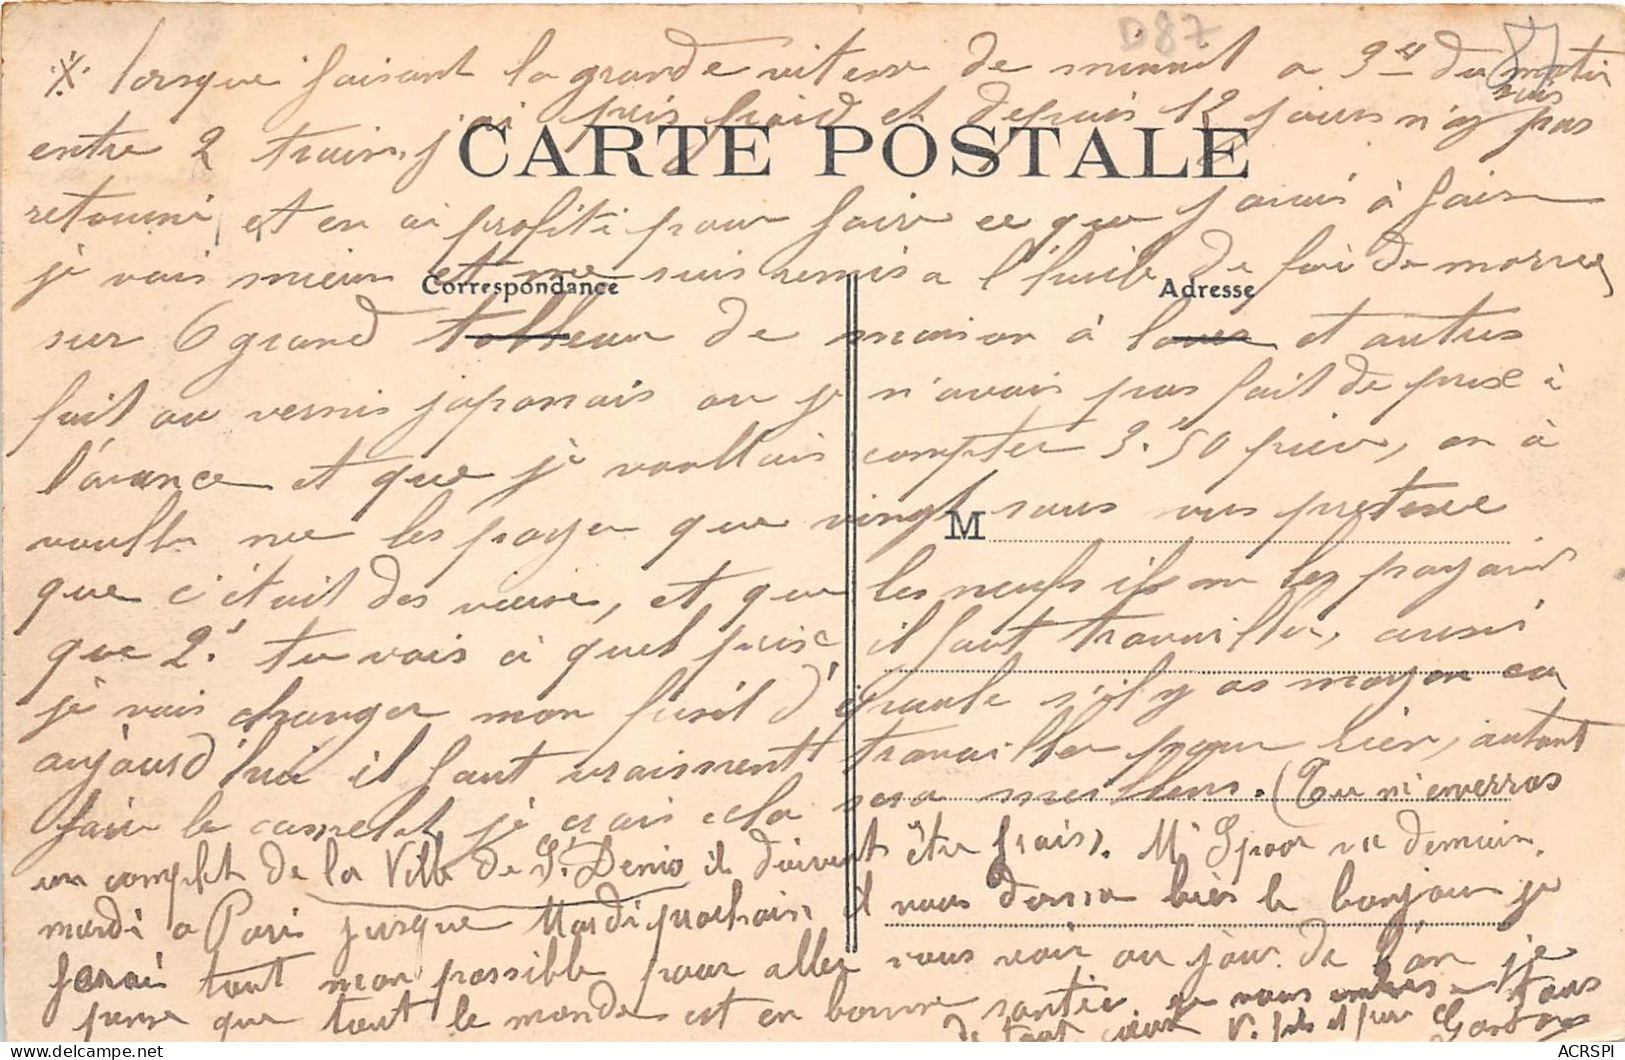 D87
87
lorsque faisant la grande vitesse de minuit a 3 du matin
suis
entre 2 trains, j'ai pris froid et depuis 12 jours n'y pas
CARTE POSTALE
retourné, et en ai profité pour faire ce que j'avais à faire
je vais mieux et me suis remis a l'huile de foi de morue
Correspondance
Adresse
sur 6 grand tableau de maison à louer et autres
fait au vernis japonais ou je n'avais pas fait de prix à
l'avance et que je voullais compter 3.50 pièce, on à
voullu me les payer que vingt sous sous pretexte
M
que c'était des vieux, et que les neufs il me les payait
que 2. tu vois à quel prix il faut travailler, aussi
je vais changer mon fusil d'épaule s'il y as moyen car
aujourd'hui il faut vraiment travailler pour rien, autant
faire le camelot je crois cela sera meilleur. (Tu m'enverras
un complet de la Ville de St Denis il doivent être frais). Mr Spoor va demain
mardi a Paris jusque Mardi prochain, il vous donne bien le bonjour je
ferai tout mon possible pour aller vous voir au jour de l'an je
pense que tout le monde est en bonne santée je vous embrasse tous
de tout cœur V. fils et Gaston
ACRSPI